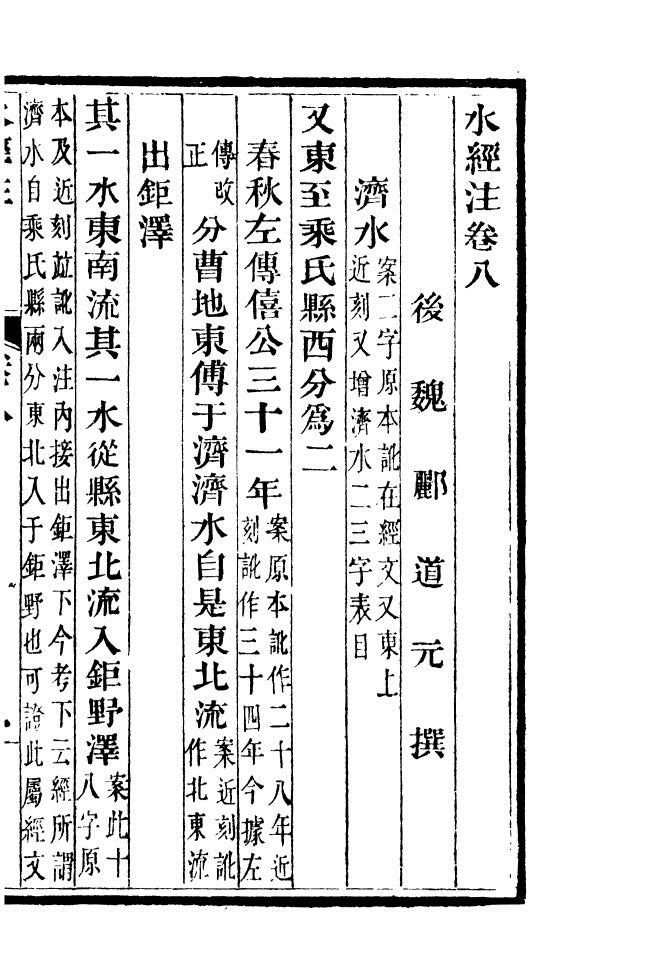 水經注卷八
後魏酈道元撰
濟水案二字原本訛在經文又東上近刻又增濟水二三字表目
又東至乘氏縣西分爲二
春秋左傳僖公三十一年案原本訛作二十八年近刻訛作三十四年今據左
傳改正分曹地東傅于濟濟水自是東北流案近刻訛作北東流
出鉅澤
其一水東南流其一水從縣東北流入鉅野澤案此十八字原
本及近刻竝訛入注內接出鉅澤下今考下云經所謂濟水自乘氏縣兩分東北入于鉅野也可證此屬經文